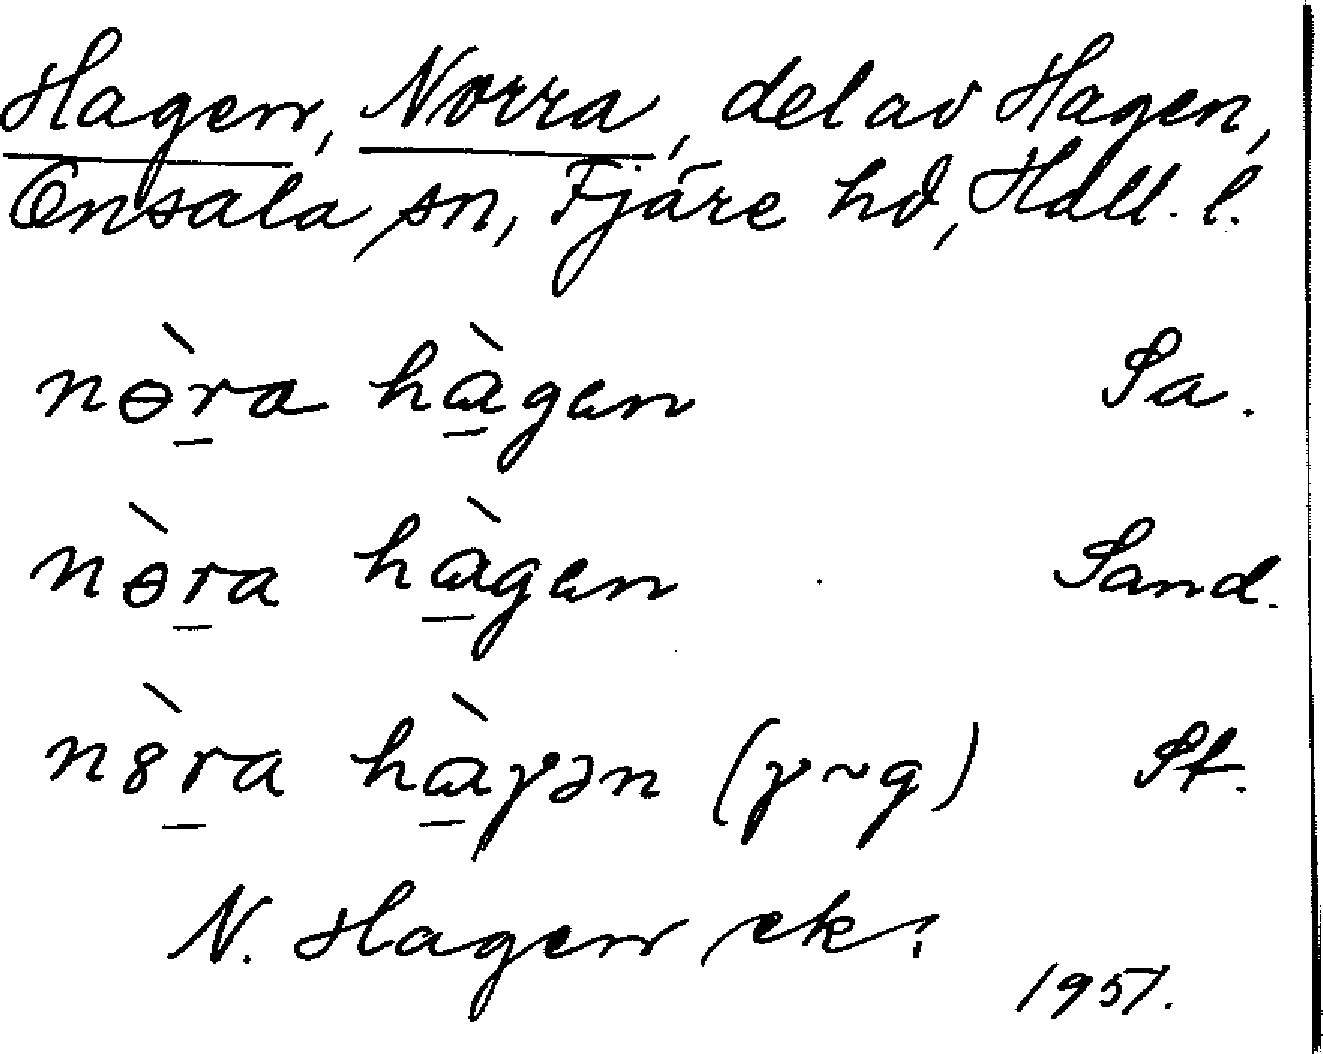 Hagen, Norra, del av Hagen,
Onsala sn, Fjäre hd, Hall. l.
nɵ̀r̲a hɑ̲̀gen Sa.
nɵ̀r̲a hɑ̲̀gen Sand.
n8̀r̲a hɑ̲̀γən (γ~g) St.
N. Hagen ek.
1957.